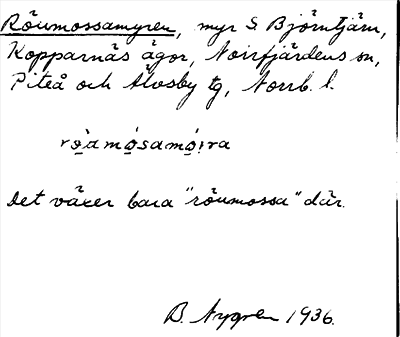 Röumossamyren, myr S. Björntjärn,
Kopparnäs ägor, Norrfjärdens sn,
Piteå och Älvsby tg, Norrb. l.
Det växer bara "röumossa" där.
B. Nygren 1936.